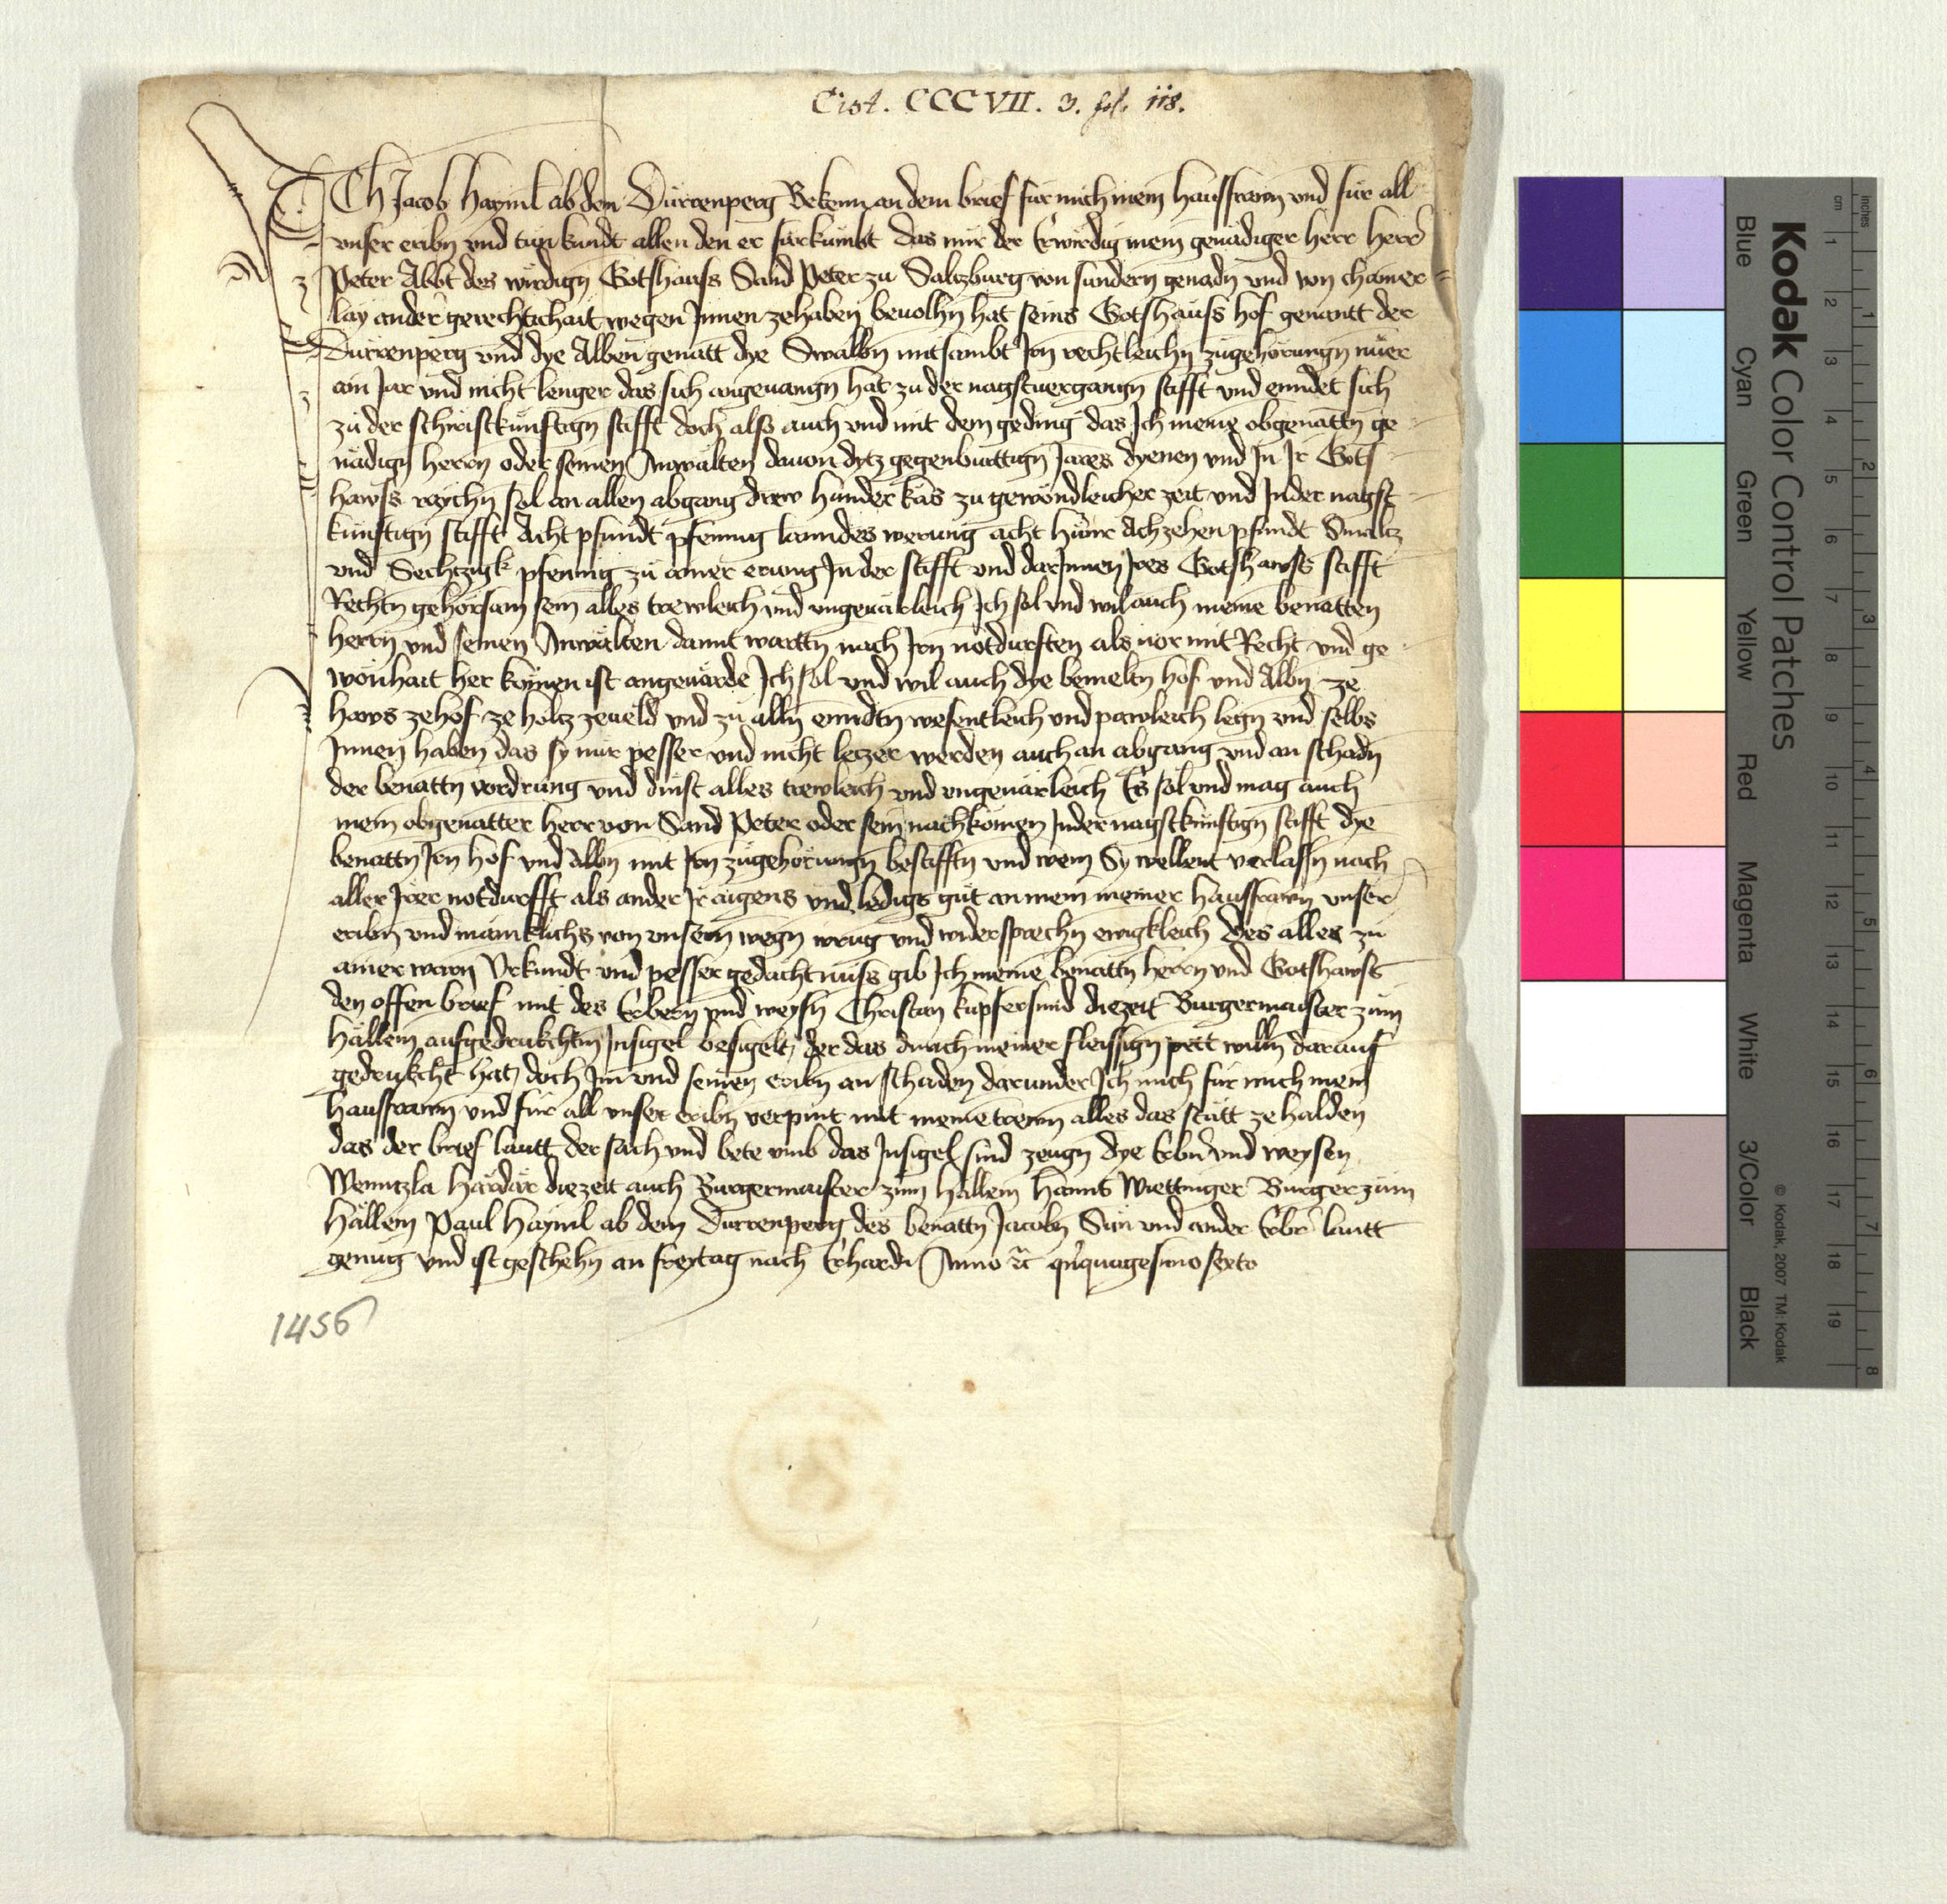 Cist. CCCVII. 3. fol. 118.
ICh Jacob Hayml ab dem Dürrenperg Bekenn an dem brief für mich mein hausfrawn und für all
unser eribn und tün kundt allen den er fürkümbt das mir der Erwirdig mein genädiger herr herr
Peter Abbt des wirdign Gotshauss Sand Peter zu Saltzburg von sundern genadn und von chainer
lay ander gerechtichait wegen Innen zehaben beuolhn hat seins Gotshauss hof genantt der
Dürrenperg und dye Alben genātt dye Swalbn mitsambt Irn rechtleichn zügehörungn nüer
ain Jar und nicht lenger das sich angeuangn hat zu der nagstuergangn stifft und enndet sich
zü der schiristkünftign stifft doch alss auch und mit dem geding das Ich meinē obgenāttn ge
nädign herrn oder seinen Anwälten dauon dytz gegenburttign Jares dyenen und In Ir Gots
hawss raychn sol an allen abgang drew hünder käs zu gewöndleicher zeit und In der nagst
künftign stifft Acht pfundt pfennig lanndes werung acht hüner Achzehen pfundt Smaltz
und Sechtzigk pfennig zü ainer erung In der stifft und darInnen Ires Gotshawss stifft
Rechtn gehorsam sein alles trewleich und ungeuärleich Ich sol und wil auch meinē benātten
herrn und seinen Anwälten damit warttn nach Irn notdurften als uor mit Recht und ge
wonhait her komen ist angeuärde Ich sol und wil auch dye bemeltn hof und Albn ze
haws zehof ze holtz zeueld und zü alln enndtn wesentleich und pawleich legn und selbs
Innen haben das sy nür pesser und nicht letzer werden auch an abgang und an schadn
der benāttn vordrung und dinst alles trewleich und ungeuärleich Es sol und mag auch
mein obgenātter herr von Sand Peter oder sein nachkomen In der nagstkünftign stifft dye
benāttn Irn hof und Albn mit Irn zügehörungn bestifftn und wem Sy wellent verlassn nach
aller Irer notdurfft als ander Ir aigens und ledigs güt an mein meiner hausfrawn unser
eribn und mäniklichs von unsern wegn irrūg und widersprechn ewigkleich Des alles zu
ainer warn Urkundt und pesser gedachtnüss gib Ich meinē benāttn herrn und Gotshawss
den offen brief mit des Erbern und weysn Christan kupfersmid diezeit Burgermaister zum
Hällein aufgedrukchtm Insigel besigelt, der das durch meiner fleissign pett willn darauf
gedrukcht hat, doch Im und seinen eribn an schaden darunder Ich mich für mich mein
hausfrawn und für all unser eribn verpint mit meinē trewn alles das stätt ze halden
das der brief lautt der sach und bete umb das Insigel sind zeugn dye Erbn und weysen
Wenntzla Härdär diezeit auch Burgermaister zum Hällein Hanns Wiettinger Burger zum
Hällein Paul Hayml ab dem Dürrenperg des benāttn Jacobn Sün und ander Erbr lautt
genug und ist geschehn an freytag nach Erhardi Anno etc quīquagesimo sexto
1456
Kodak Color Control Patches
Blue Cyan Green Yellow Red Magenta White 3/Color Black
© Kodak, 2007 TM: Kodak
inches 1 2 3 4 5 6 7 8
cm 1 2 3 4 5 6 7 8 9 10 11 12 13 14 15 16 17 18 19